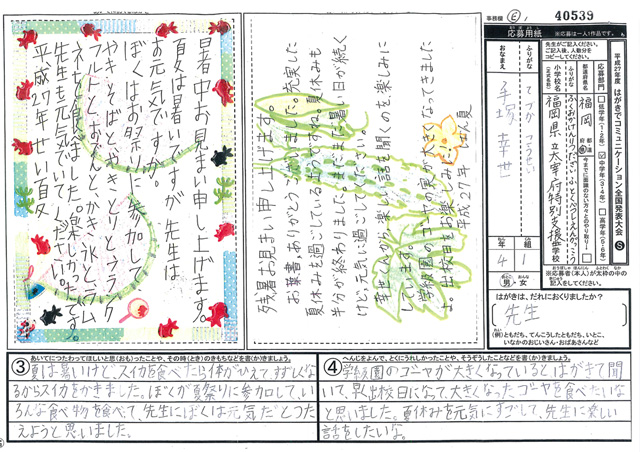 事務欄 Ⓔ 40539
応募用紙
※応募は一人1作品です。
先生がご記入ください。
平成27年度 はがきでコミュニケーション全国発表大会 Ⓢ
応募部門
低学年(1・2年)
中学年(3・4年)
高学年(5・6年)
都道府県名
福岡
ふりがな
小学校名
福岡県立太宰府特別支援学校
ふりがな
おなまえ
手塚 幸世
年 組
4 1
男 女
はがきは、だれにおくりましたか?
先生
(例)ともだち、てんこうしたともだち、いとこ、
いなかのおじいさん・おばあさんなど
暑中お見まい申し上げます。
夏は暑いですが、先生は
お元気ですか。
ぼくはお祭りに参加して
やきそばとやきとりとフランク
フルトとおでんとかき氷とラム
ネを食べました。楽しかったです。
先生も元気でいてくださいね。
平成二十七年 せい夏
残暑お見まい申し上げます。
お葉書、ありがとうございました。充実した
夏休みを過ごしているようですね。夏休みも
半分が終わりました。まだまだ暑い日が続く
けど、元気に過ごしてください。
幸世くんから、楽しい話を聞くのを楽しみに
しています。
学級園のゴーヤの実が大きくなってきました
よ。出校日をお楽しみに。
平成27年 晩夏
③ あいてにつたわってほしいと思(おも)ったことや、その時(とき)のきもちなどを書(か)きましょう。
夏は暑いけど、スイカを食べたら体がひえてすずしくな
るからスイカをかきました。ぼくが夏祭りに参加して、い
ろんな食べ物を食べて、先生にぼくは元気だとつた
えようと思いました。
④ へんじをよんで、とくにうれしかったことや、そうぞうしたことなどを書(か)きましょう。
学級園のゴーヤが大きくなっているとはがきで聞
いて、早く出校日になって、大きくなったゴーヤを食べたいな
と思いました。夏休みを元気にすごして、先生に楽しい
話をしたいな。